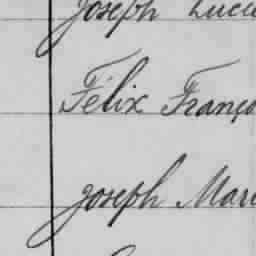 Joseph Luci
Félix Franço
Joseph Mari